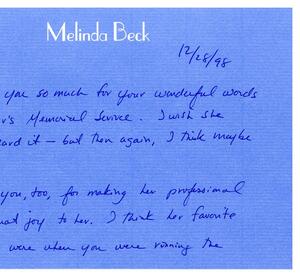 Melinda Beck
12/28/98
you so much for your wonderful words
's Memorial Service. I wish she
eard it — but then again, I think maybe
you, too, for making her professional
joy to her. I think her favorite
were when you were running the